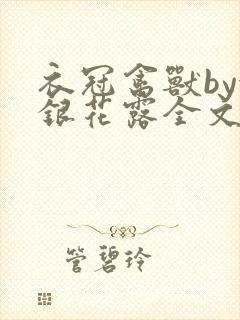 衣冠禽獸by
銀花露全文
管碧玲